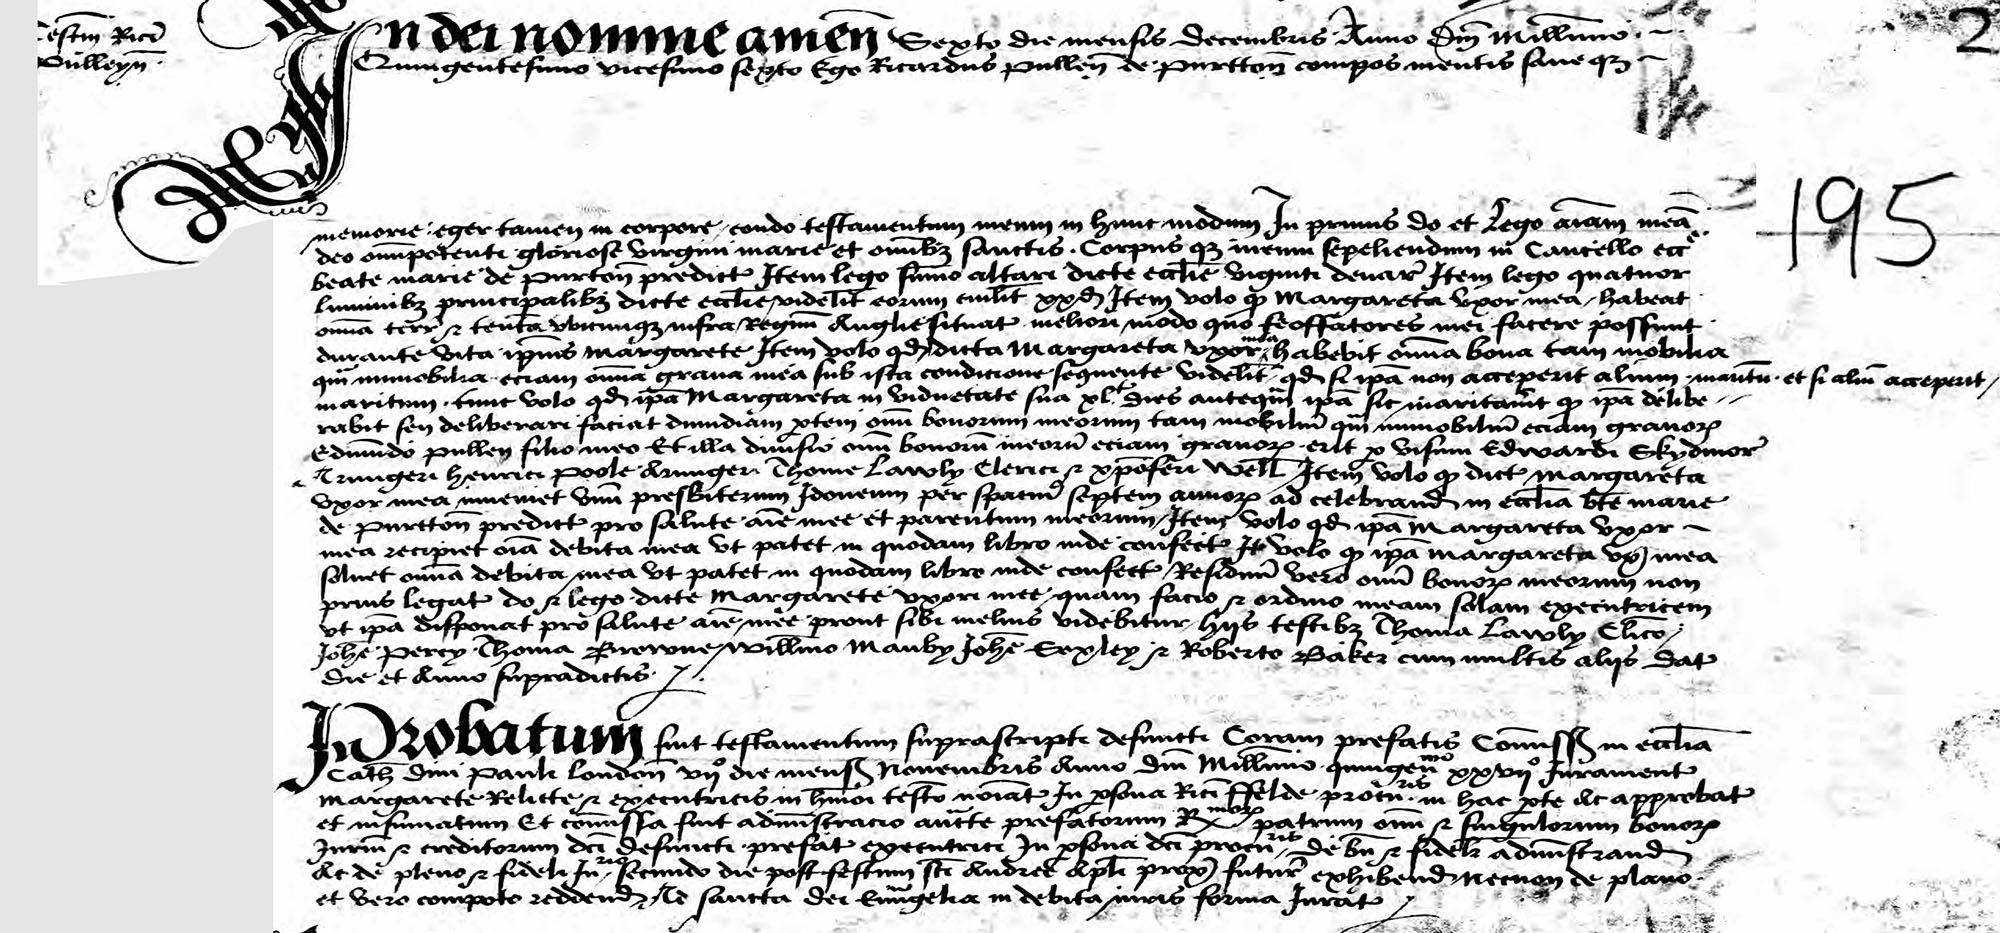 Testm Ricī
Pulleyn
2
In dei nomine amen Sexto die mensis Decembris Anno Dm̄ Millimo
Quingentesimo vicesimo sexto Ego Ricardus Pulleyn de Purtton compos mentis sane qz
195
memorie eger tamen in corpore condo testamentum meum in hunc modum In primis do et Lego aīam meā
deo omīpotenti gloriose virgini marie et omībz sanctis Corpus qz meum sepeliendum in Cancello ecc̄
beate marie de Purton predict Item lego sumo altari dicte ecclīe viginti denar̄ Item lego quatuor
luminibz principalibz dicte ecclīe videlīt eorum cuilīt xxd Item volo qd Margareta vxor mea habeat
omīa terr̄ & tenta vbicumqz infra Regnum Anglie situat meliori modo quo feoffatores mei facere possunt
durante vita ip̄ius Margarete Item volo qd dicta Margareta vxor mea habebit omīa bona tam mobilia
qm̄ immobilia eciam omīa grana mea sub ista condicione sequente videlīt qd si ip̄a non acceperit alium maritū et si aliū acceperit
maritum tunc volo qd ip̄a Margareta in viduetate sua xl dies anteqm̄ ip̄a sic maritauit qd ip̄a delibe
rabit seu deliberari faciat dimidiam ptem omī bonorum meorum tam mobiliū qm̄ immobiliū eciam granorz
Edmundo Pulleyn filio meo Et illa diuisio omī bonorū meorū eciam granorz erit p visum Edwardi Skydmor
Armigeri Henrici Poole Armigeri Thome Lawly Clerici & xpoferi Well Item volo qd dict Margareta
vxor mea inueniet vnū presbiterum Idoneum per spatiū septem annorz ad celebrand in ecclīa bte marie
de Purtton predict pro salute aīe mee et parentum meorum Item volo qd ip̄a Margareta vxor
mea recipiet oīa debita mea vt patet in quodam libro inde confect It volo qd ip̄a Margareta vx mea
soluet omīa debita mea vt patet in quodam libro inde confect Residuū vero omī bonorz meorum non
prius legat do & lego dicte Margarete vxori mee quam facio & ordino meam solam executricem
vt ip̄a disponat pro salute aīe mee prout sibi melius videbitur Hijs testibz Thoma Lawly Clīco
Johē Percy Thoma Browne Willmo Manby Johē Sexley & Roberto Baker cum multis alijs Dat
die et Anno supradictis
Probatum fuit testamentum suprascripti defuncti Coram prefatis Comiss in ecclīa
Cath Diui Pauli London vijo die mens Nouembris Anno Dm̄ Millimo quingenmo xxvijo Jurament
Margarete Relicte & executricis in hmōi testo noīat In psona Ricī ffelde procuris in hac pte Ac approbat
et insinuatum Et comissa fuit adm̄istracio aucte prefatorum Rx morz patrum omī & singulorum bonorz
Jurium & creditorum dcī defuncti prefat executrici In psona dcī procuris De bn̄ & fidelr adm̄istrand
Ac de pleno & fideli Inrio secundo die post festum scī Andree Apli prox futur̄ exhibend Necnon de plano
et vero compoto reddend Ad sancta dei Euangelia in debita iuris forma Jurat